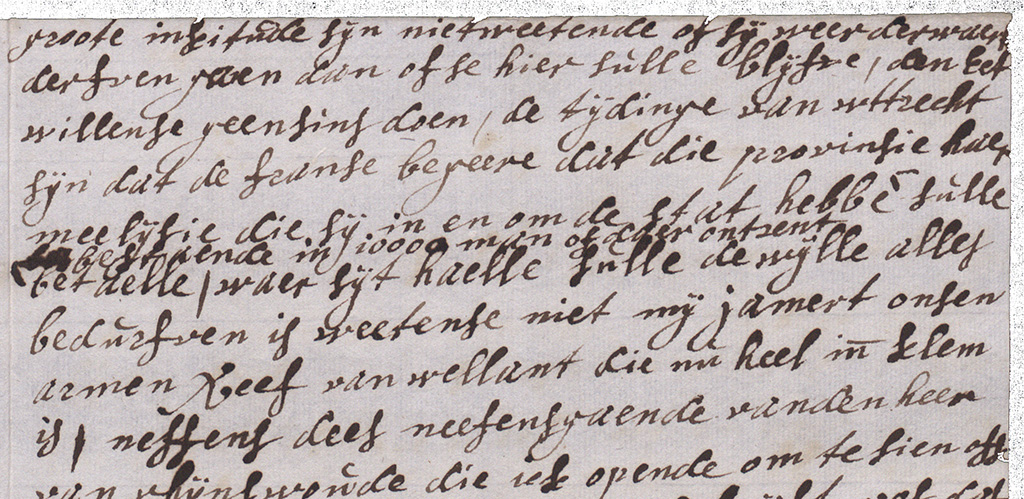 groote inkitude syn niet weetende of sÿ weer derwaer
derfven gaen dan of se hier sulle blÿfve, den ket
willense geensins doen, de tÿdinge van wttrecht
sÿn dat de franse begeere dat die provinsie haer
meelÿsie die sÿ in en om de stat hebbē sulle
bestaende in 10000 man of daer ontrent
betaelle / waer sÿt haelle sulle dewÿlle alles
bedurfven is weetense niet mÿ jamert onsen
armen Neef van wellant die nu heel in̄ klem
is / neffens dees neefensgaende vanden heer
van rhÿnswoude die ick opende om te sien off